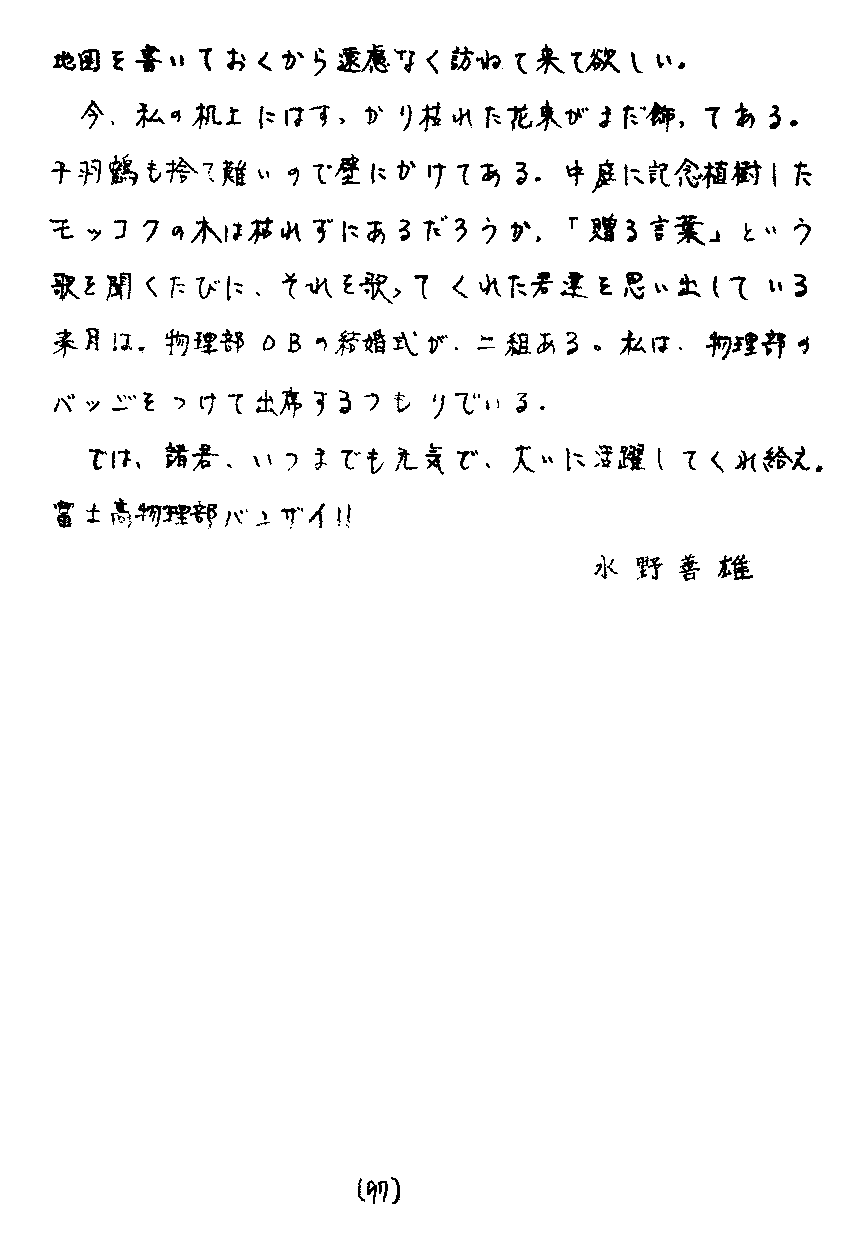 地図を書いておくから遠慮なく訪ねて来て欲しい。
今、私の机上にはすっかり枯れた花束がまだ飾ってある。
千羽鶴も捨て難いので壁にかけてある。中庭に記念植樹した
モッコクの木は枯れずにあるだろうか。「贈る言葉」という
歌を聞くたびに、それを歌ってくれた君達を思い出している
来月は、物理部OBの結婚式が、二組ある。私は、物理部の
バッジをつけて出席するつもりでいる。
では、諸君、いつまでも元気で、大いに活躍してくれ給え。
富士高物理部バンザイ!!
水野善雄
(97)